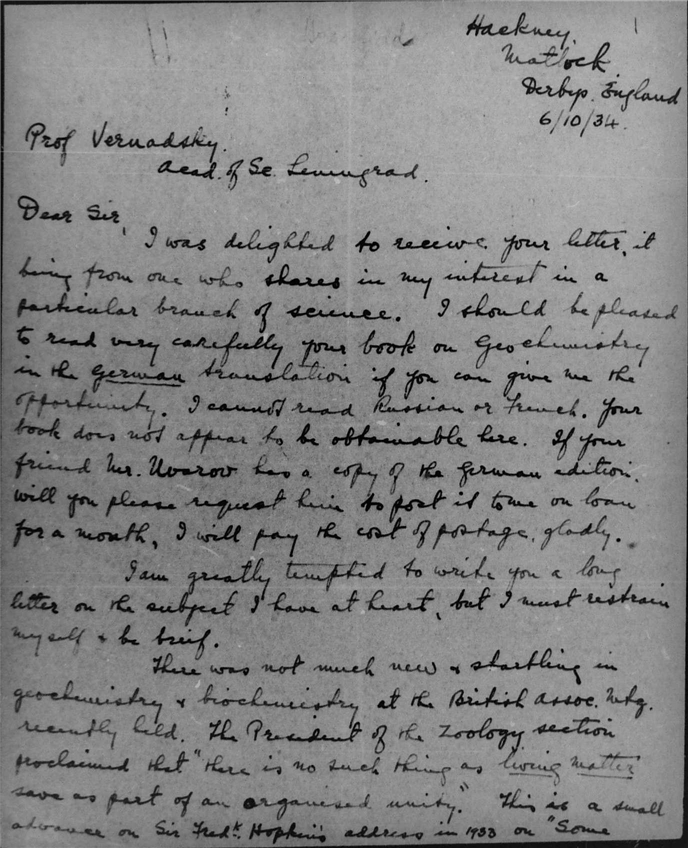 Hackney,
Matlock.
Derbys. England
6/10/34.
Prof Vernadsky.
Acad. of Sc. Leningrad.
Dear Sir,
I was delighted to receive your letter, it
being from one who shares in my interest in a
particular branch of science. I should be pleased
to read very carefully your book on Geochemistry
in the German translation if you can give me the
opportunity. I cannot read Russian or French. Your
book does not appear to be obtainable here. If your
friend Mr. Uvarov has a copy of the German edition,
will you please request him to post it to me on loan
for a month, I will pay the cost of postage, gladly.
I am greatly tempted to write you a long
letter on the subject I have at heart, but I must restrain
myself & be brief.
There was not much new & startling in
geochemistry & biochemistry at the British Assoc. Mtg.
recently held. The President of the Zoology section
proclaimed that "there is no such thing as living matter
save as part of an organised unity." This is a small
advance on Sir Fredk. Hopkins address in 1933 on "Some